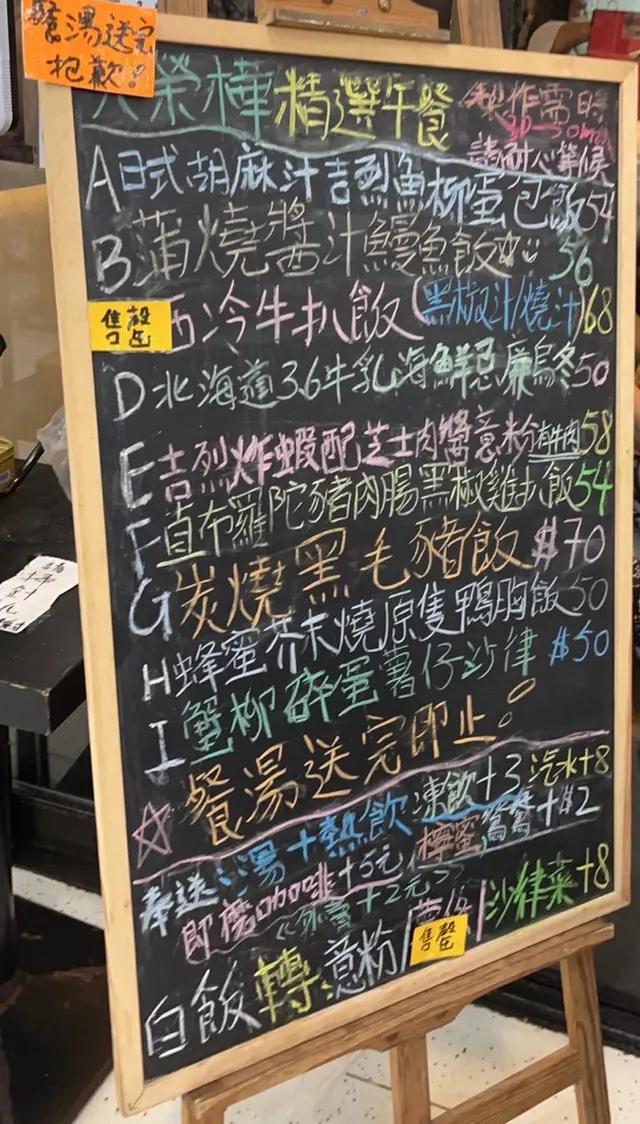 餐湯送完
抱歉!
榮樺精選午餐
製作需時
30-50min
請耐心等候
A日式胡麻汁吉烈魚柳蛋包飯54
B蒲燒醬汁鰻魚飯 56
售罄
西冷牛扒飯(黑椒汁/燒汁)68
D北海道3.6牛乳海鮮忌廉烏冬50
E吉烈炸蝦配芝士肉醬意粉有牛肉58
F直布羅陀豬肉腸黑椒雞扒飯54
G炭燒黑毛豬飯$70
H蜂蜜芥末燒原隻鴨胸飯50
I蟹柳碎蛋薯仔沙律 $50
☆餐湯送完即止!
奉送:湯+熱飲 凍飲+3 汽水+8
即磨咖啡+5元 檸蜜 鴛鴦+$2
<外賣+2元>
白飯轉:意粉/薯/沙律菜+8
售罄